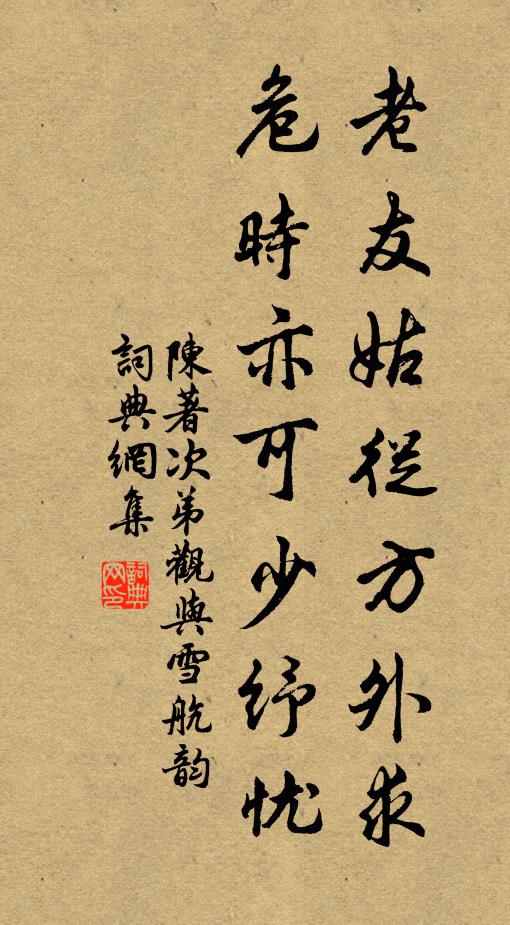 老友姑從方外求
危時亦可少紓忧
陳著次弟觀與雪航韵
詞典網集
詞典网印